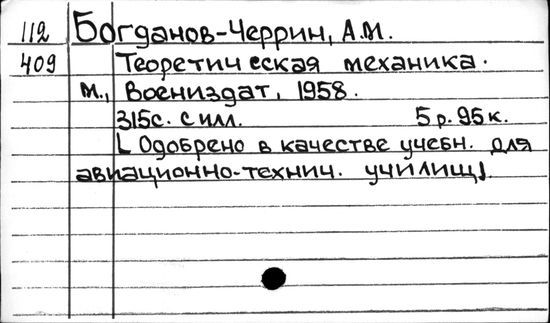 112 Богданов-Черрин, А.М.
409 Теоретическая механика.
М., Воениздат, 1958.
315с. с илл. 5 р. 95 к.
[Одобрено в качестве учебн. для
авиационно-технич. училищ].